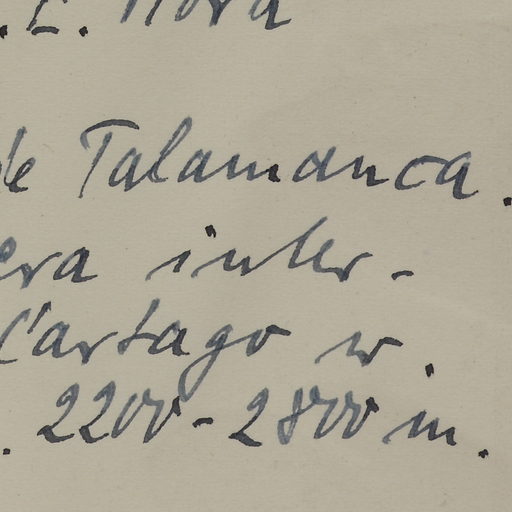 . E. Mora
de Talamanca.
era inter-
Cartago w.
. 2200-2800 m.